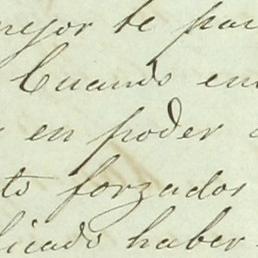 mejor te par
Cuando en
en poder
to forzados
licado haber